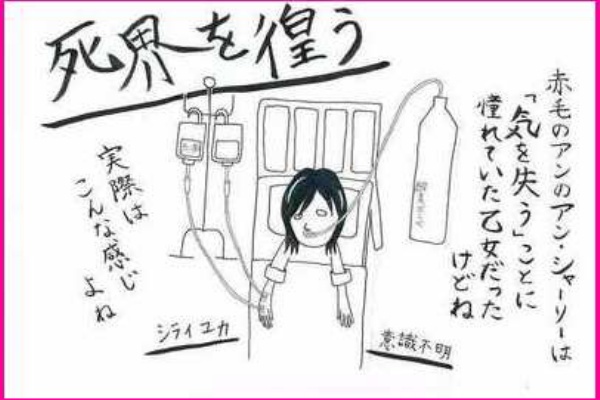 死界を徨う
赤毛のアンのアン・シャーリーは
「気を失う」ことに
憧れていた乙女だった
けどね
実際は
こんな感じ
よね
シライユカ
意識不明